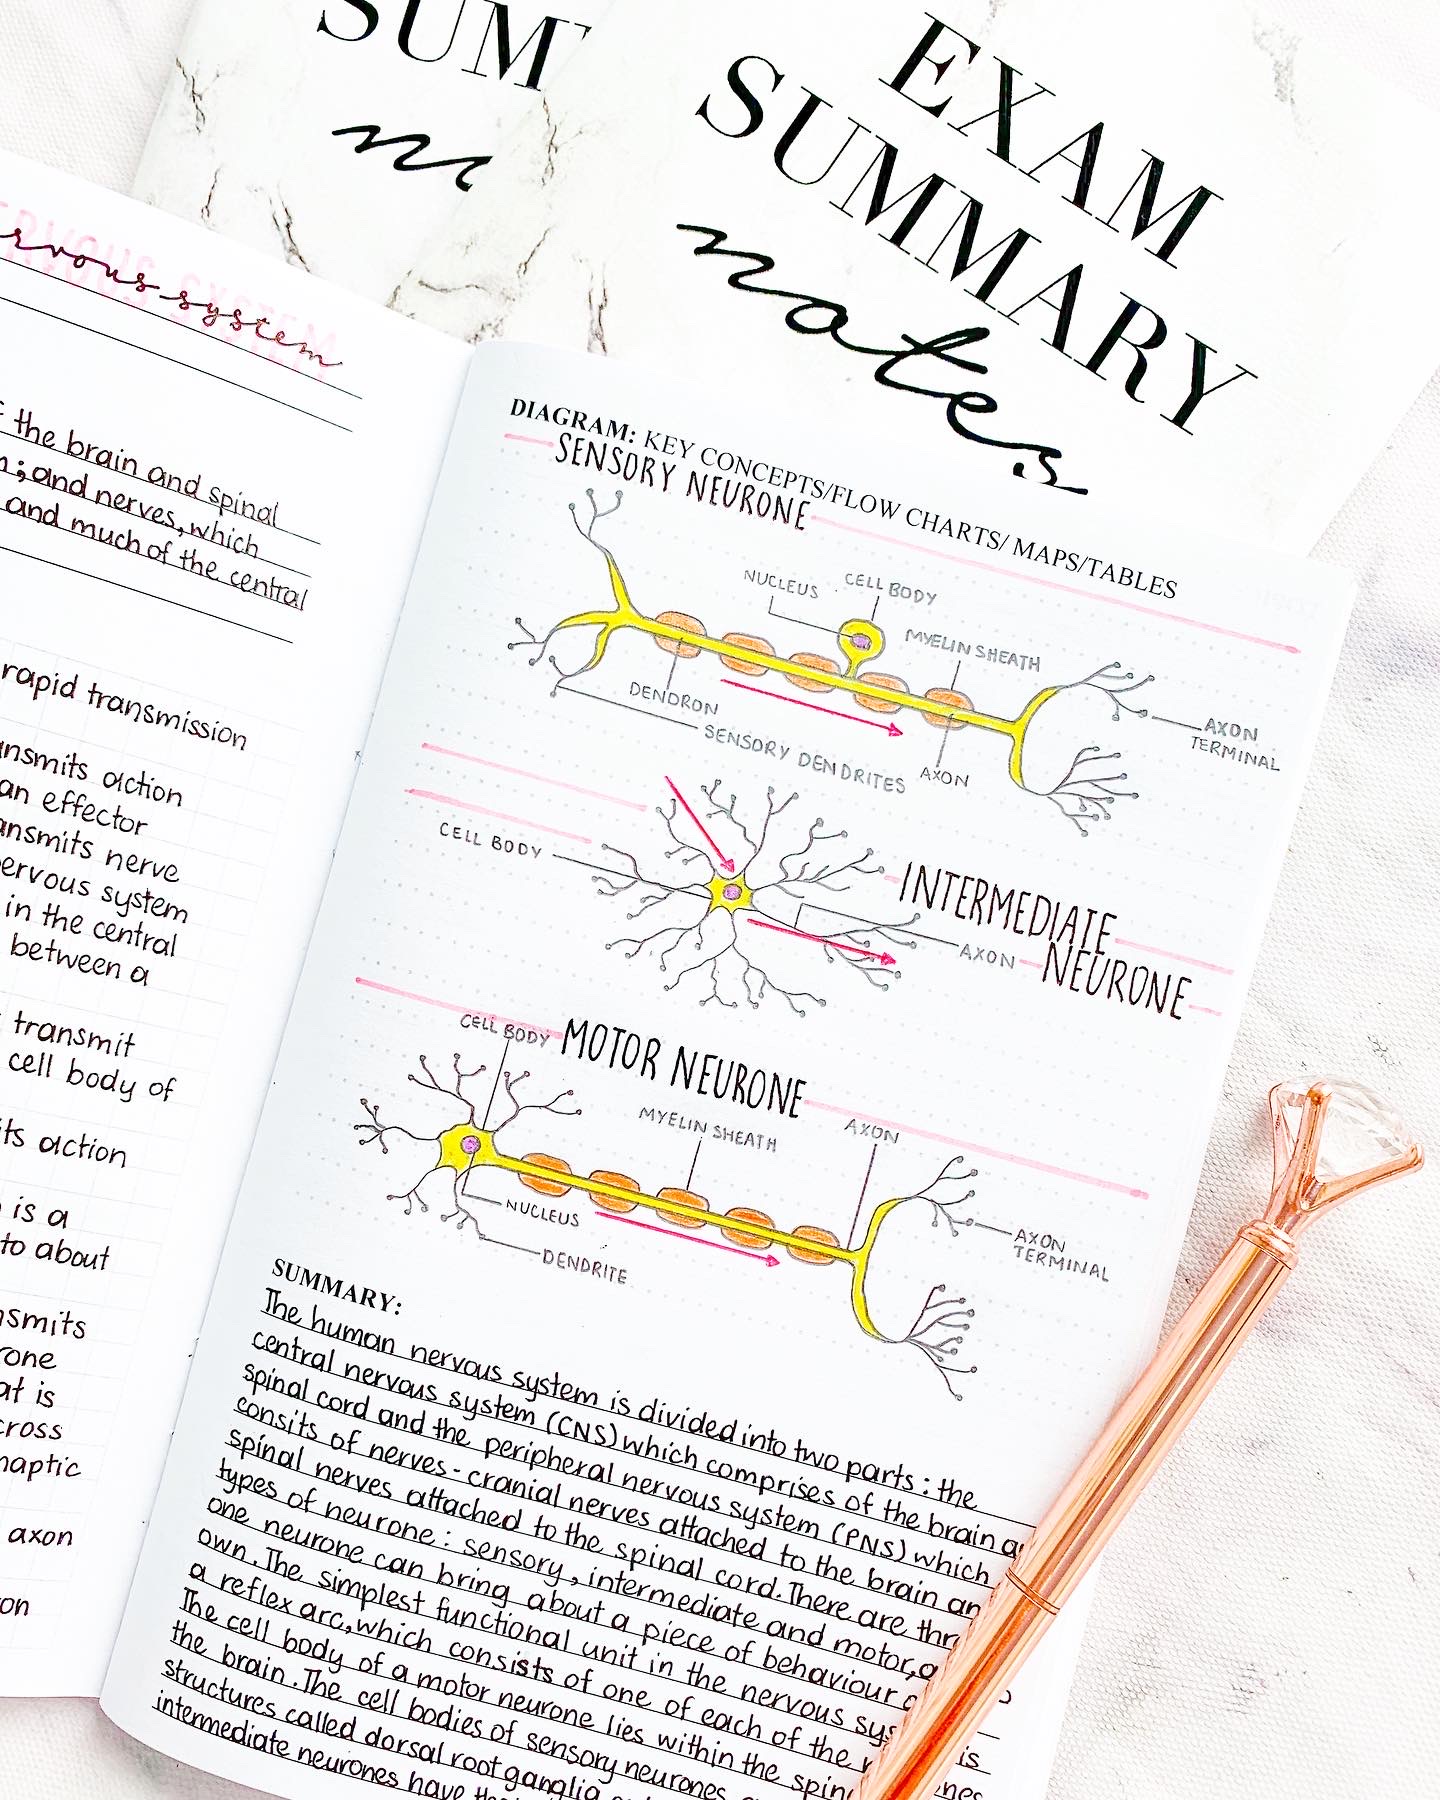 SUM
EXAM
SUMMARY
notes
NERVOUS SYSTEM
nervous system
the brain and spinal
; and nerves, which
and much of the central
rapid transmission
ansmits action
an effector
ansmits nerve
nervous system
in the central
between a
transmit
cell body of
its action
is a
to about
nsmits
rone
at is
cross
naptic
axon
on
DIAGRAM: KEY CONCEPTS/FLOW CHARTS/ MAPS/TABLES
SENSORY NEURONE
NUCLEUS
CELL BODY
MYELIN SHEATH
DENDRON
SENSORY DENDRITES
AXON
AXON
TERMINAL
CELL BODY
INTERMEDIATE
NEURONE
AXON
CELL BODY
MOTOR NEURONE
MYELIN SHEATH
AXON
NUCLEUS
DENDRITE
AXON
TERMINAL
SUMMARY:
The human nervous system is divided into two parts : the
central nervous system (CNS) which comprises of the brain a
spinal cord and the peripheral nervous system (PNS) which
consits of nerves - cranial nerves attached to the brain an
spinal nerves attached to the spinal cord. There are thr
types of neurone : sensory, intermediate and motor,
one neurone can bring about a piece of behaviour
own. The simplest functional unit in the nervous sys is
a reflex arc, which consists of one of each of the nes
The cell body of a motor neurone lies within the spin
the brain. The cell bodies of sensory neurones
structures called dorsal root ganglia
intermediate neurones have